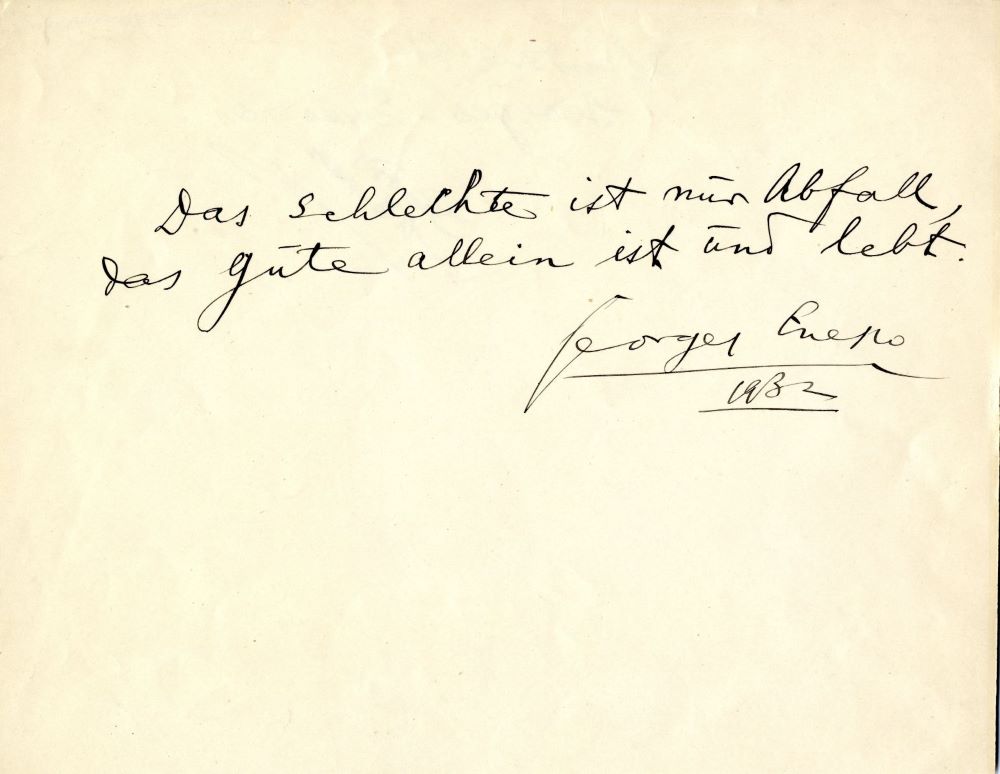 Das schlechte ist nur Abfall,
das gute allein ist und lebt.
Georges Enesco
1932